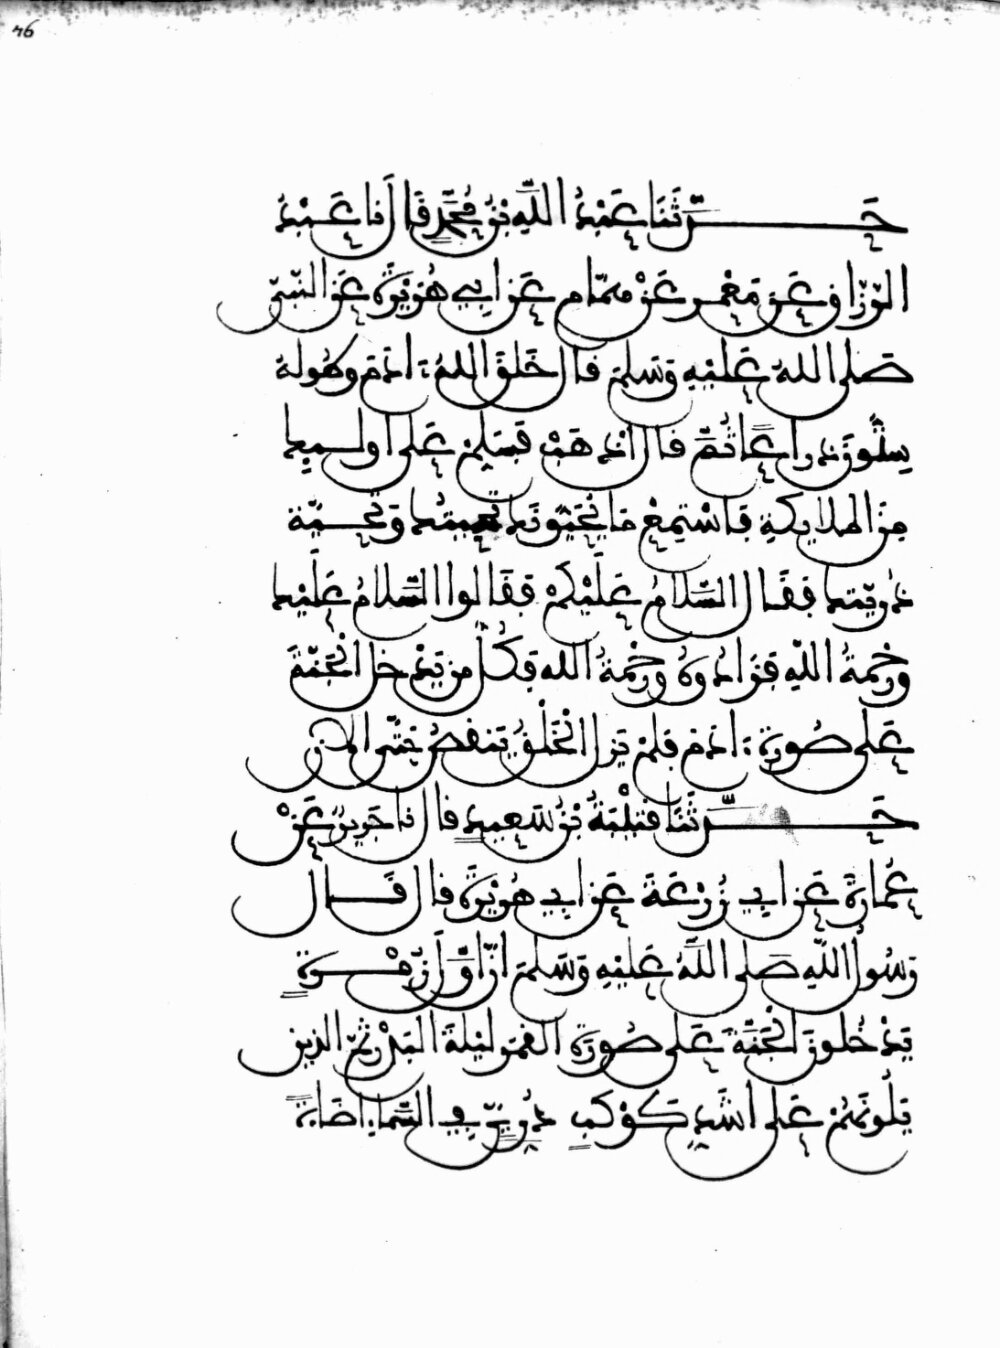 حَدَّثَنَا عَبْدُ اللَّهِ بْنُ مُحَمَّدٍ قَالَ أَنَا عَبْدُ
الرَّزَّاقِ عَنْ مَعْمَرٍ عَنْ هَمَّامٍ عَنْ أَبِي هُرَيْرَةَ عَنِ النَّبِيِّ
صَلَّى اللهُ عَلَيْهِ وَسَلَّمَ قَالَ خَلَقَ اللهُ ءَادَمَ وَطُولُهُ
سِتُّونَ ذِرَاعًا ثُمَّ قَالَ اذْهَبْ فَسَلِّمْ عَلَى أُولَـئِكَ
مِنَ الْمَلَايِكَةِ فَاسْتَمِعْ مَا يُحَيُّونَكَ تَحِيَّتُكَ وَتَحِيَّةُ
ذُرِّيَّتِكَ فَقَالَ السَّلَامُ عَلَيْكُمْ فَقَالُوا السَّلَامُ عَلَيْكَ
وَرَحْمَةُ اللَّهِ فَزَادُوهُ وَرَحْمَةُ اللهِ فَكُلُّ مَنْ يَدْخُلُ الْجَنَّةَ
عَلَى صُورَةِ ءَادَمَ فَلَمْ يَزَلِ الْخَلْقُ يَنْقُصُ حَتَّى الْآنَ
حَدَّثَنَا قُتَيْبَةُ بْنُ سَعِيدٍ قَالَ نَا جَرِيرٌ عَنْ
عُمَارَةَ عَنْ أَبِي زُرْعَةَ عَنْ أَبِي هُرَيْرَةَ قَالَ قَالَ
رَسُولُ اللَّهِ صَلَّى اللَّهُ عَلَيْهِ وَسَلَّمَ إِنَّ أَوَّلَ زُمْرَةٍ
يَدْخُلُونَ الْجَنَّةَ عَلَى صُورَةِ الْقَمَرِ لَيْلَةَ الْبَدْرِ ثُمَّ الَّذِينَ
يَلُونَهُمْ عَلَى أَشَدِّ كَوْكَبٍ دُرِّيٍّ فِي السَّمَاءِ إِضَاءَةً